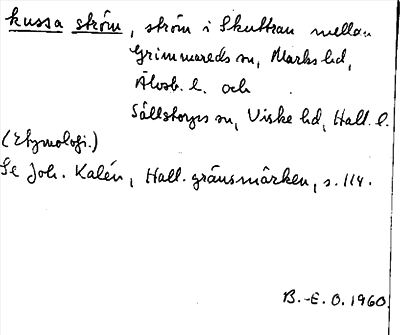 kussa ström, ström i Skuttran mellan
Grimmareds sn, Marks hd,
Älvsb. l. och
Sällstorps sn, Viske hd, Hall. l.
(Etymologi.)
Se Joh. Kalén, Hall. gränsmärken, s. 114.
B.-E. O. 1960.